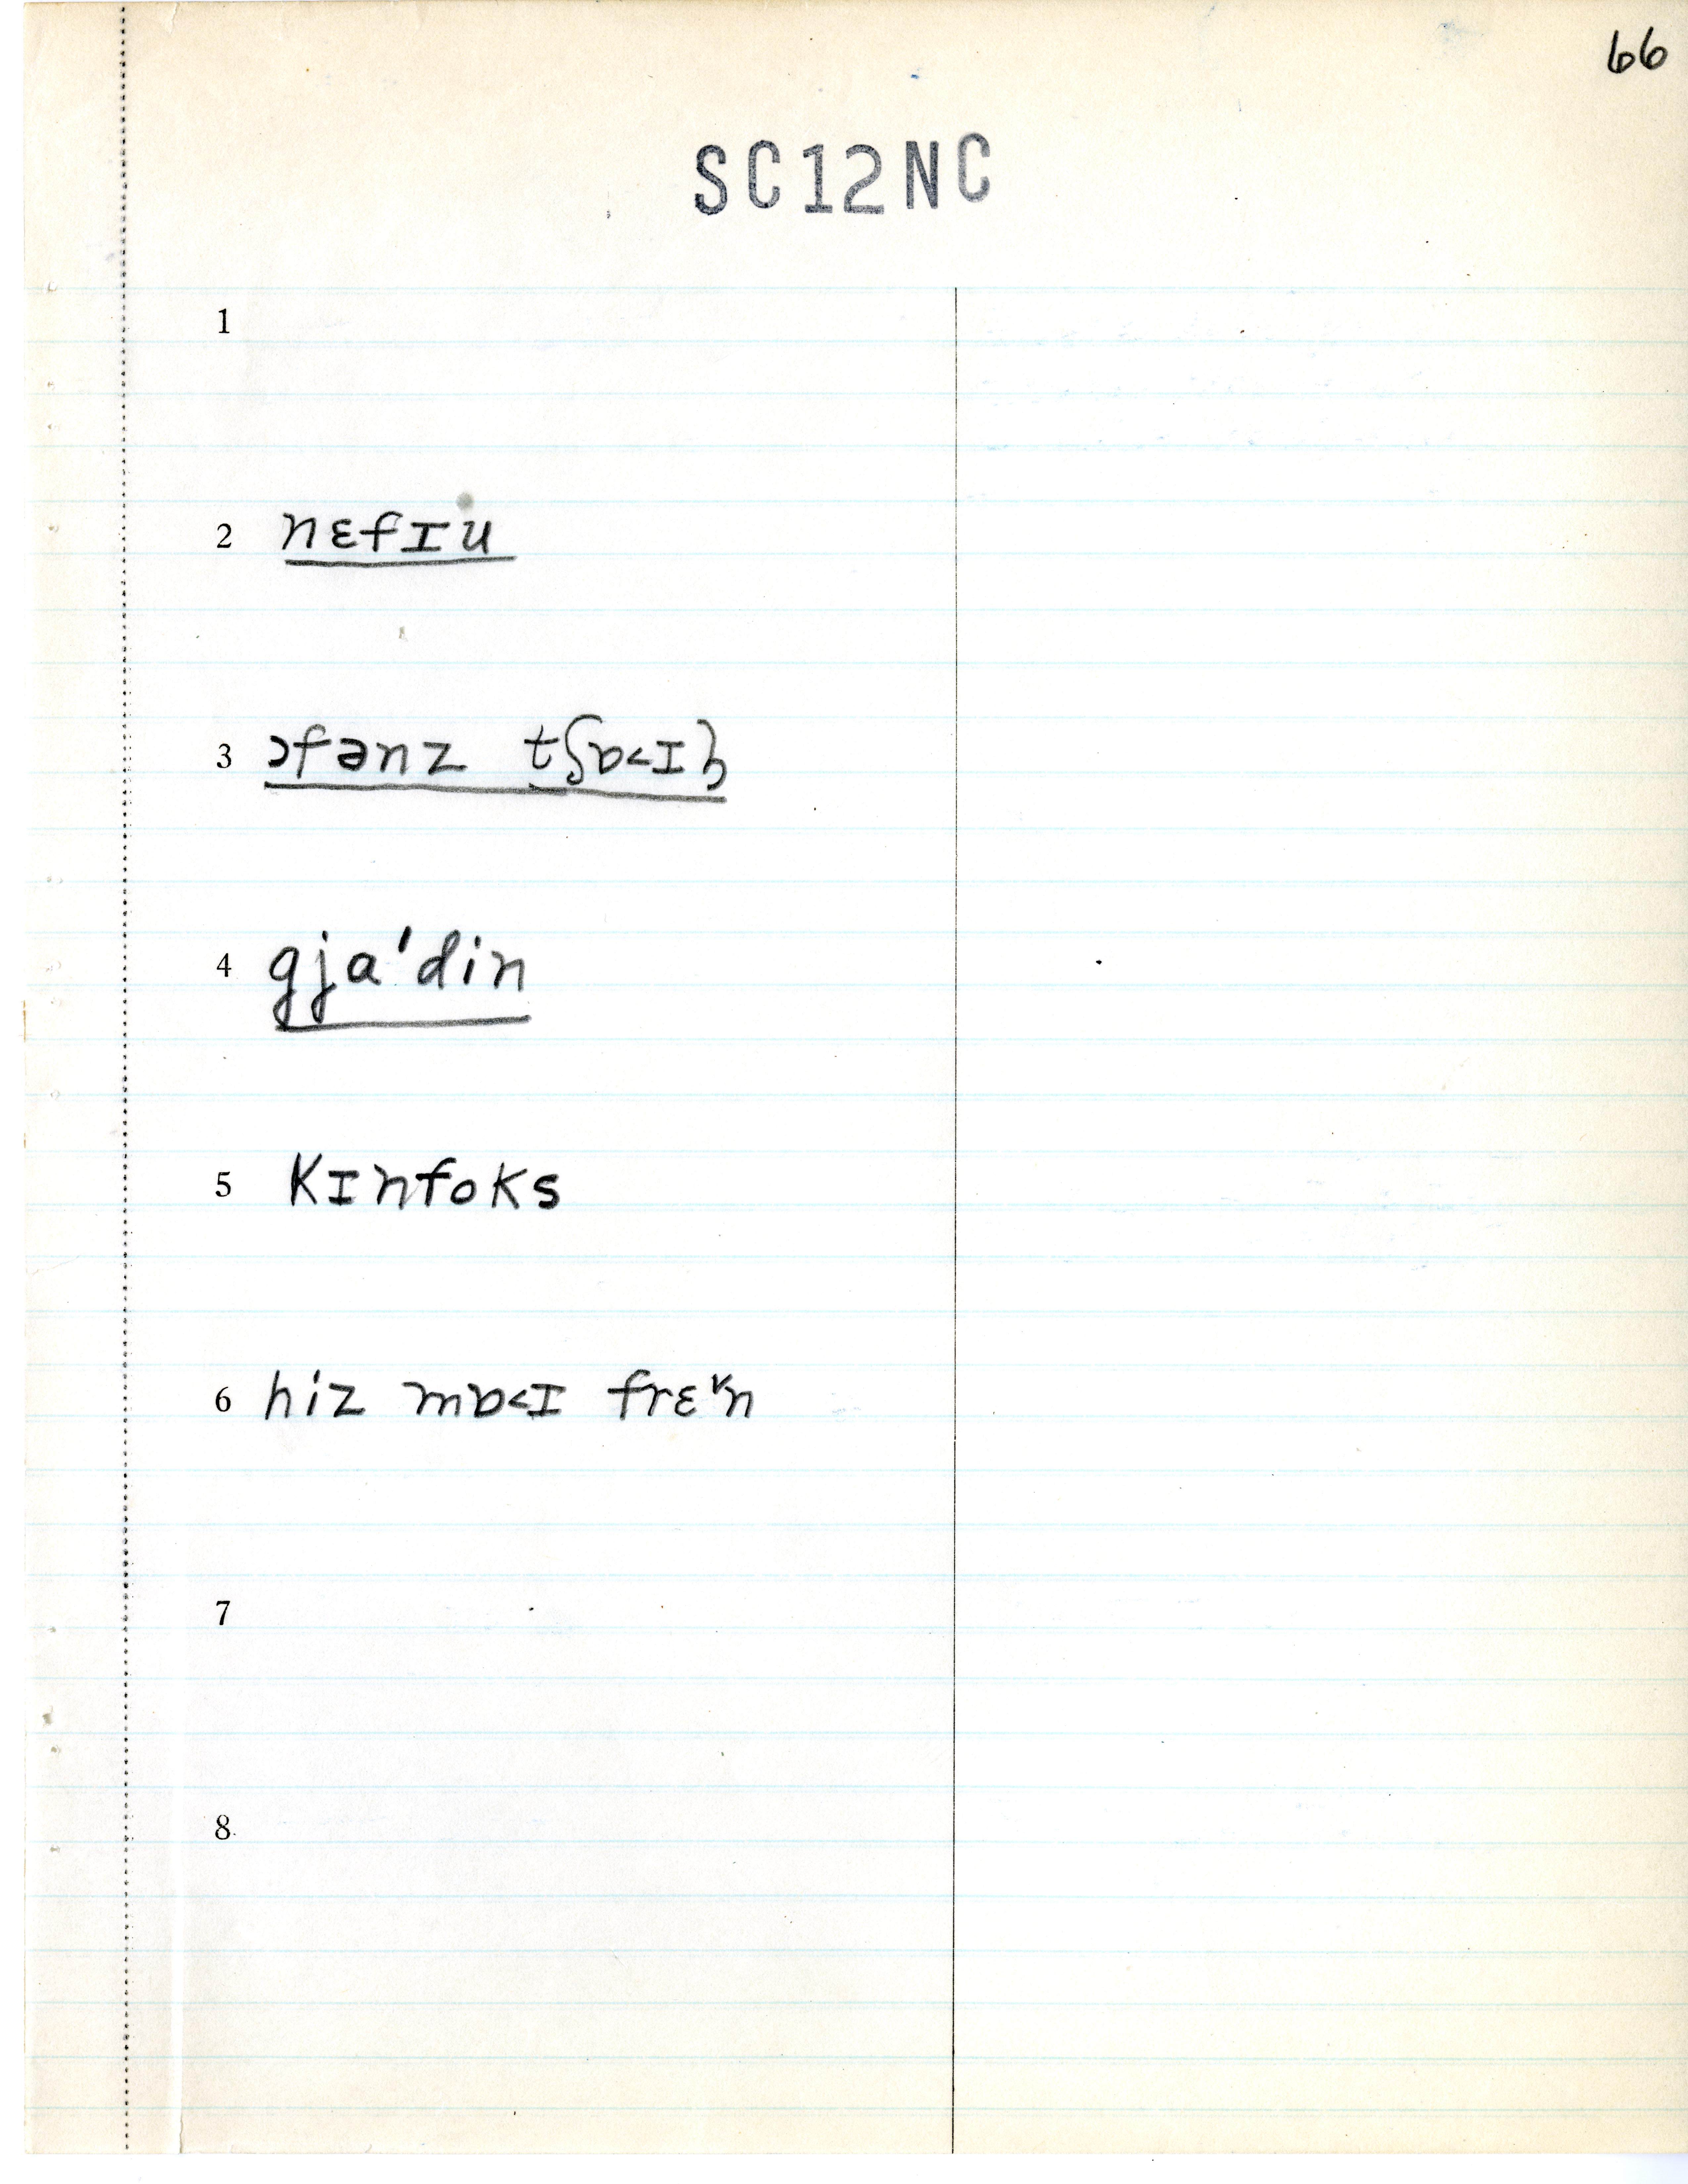 66
SC12NC
1
2 nɛfɪu
3 ɔfənz tʃɒ˂ɪɮ
4 gja'din
5 kɪnfoks
6 hiz mɒ˂ɪ frɛ˅n
7
8